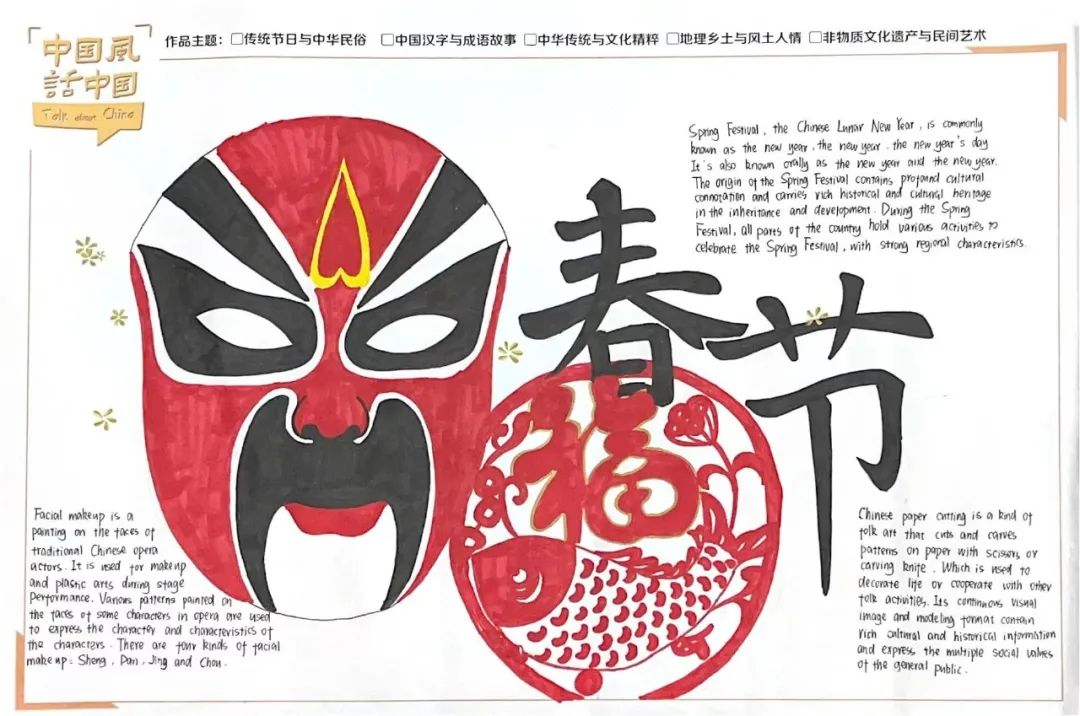 中国風
話中国
Talk about China
作品主题：□传统节日与中华民俗 □中国汉字与成语故事 □中华传统与文化精粹 □地理乡土与风土人情 □非物质文化遗产与民间艺术
Spring Festival, the Chinese Lunar New Year, is commonly
known as the new year, the new year, the new year's day
It's also known orally as the new year and the new year.
The origin of the Spring Festival contains profound cultural
connotation and carries rich historical and cultural heritage
in the inheritance and development. During the Spring
Festival, all parts of the country hold various activities to
celebrate the Spring Festival, with strong regional characteristics.
春节
福
Facial makeup is a
painting on the faces of
traditional Chinese opera
actors. It is used for makeup
and plastic arts during stage
performance. Various patterns painted on
the faces of some characters in opera are used
to express the character and characteristics of
the characters. There are four kinds of facial
makeup: Sheng, Dan, Jing and Chou.
Chinese paper cutting is a kind of
folk art that cuts and carves
patterns on paper with scissors or
carving knife. Which is used to
decorate life or cooperate with other
folk activities. Its continuous visual
image and modeling format contain
rich cultural and historical information
and express the multiple social values
of the general public.